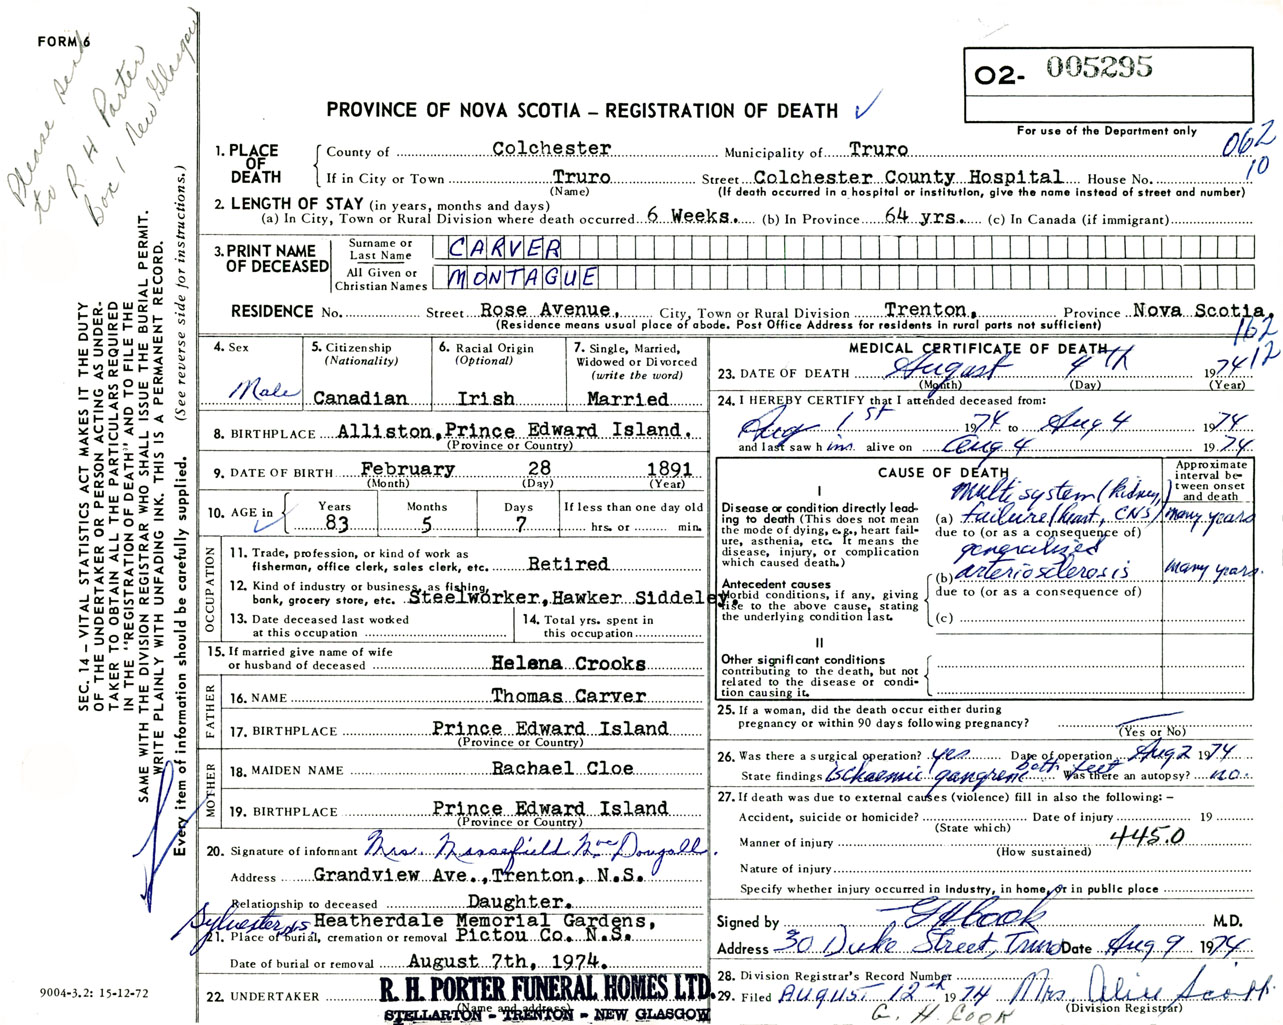 FORM 6
Please send
to R. H Porter
Box 1 New Glasgow
O2- 005295
For use of the Department only
PROVINCE OF NOVA SCOTIA – REGISTRATION OF DEATH ✓
062
10
1. PLACE OF DEATH
County of Colchester Municipality of Truro
If in City or Town Truro Street Colchester County Hospital House No.
(Name) (If death occurred in a hospital or institution, give the name instead of street and number)
2. LENGTH OF STAY (in years, months and days)
(a) In City, Town or Rural Division where death occurred 6 Weeks. (b) In Province 64 yrs. (c) In Canada (if immigrant)
3. PRINT NAME OF DECEASED
Surname or Last Name CARVER
All Given or Christian Names MONTAGUE
RESIDENCE No. Street Rose Avenue, City, Town or Rural Division Trenton, Province Nova Scotia,
(Residence means usual place of abode. Post Office Address for residents in rural parts not sufficient)
162
12
4. Sex Male
5. Citizenship (Nationality) Canadian
6. Racial Origin (Optional) Irish
7. Single, Married, Widowed or Divorced (write the word) Married
8. BIRTHPLACE Alliston, Prince Edward Island.
(Province or Country)
9. DATE OF BIRTH February 28 1891
(Month) (Day) (Year)
10. AGE in Years 83 Months 5 Days 7 If less than one day old hrs. or min.
OCCUPATION
11. Trade, profession, or kind of work as fisherman, office clerk, sales clerk, etc. Retired
12. Kind of industry or business, as fishing, bank, grocery store, etc. Steelworker, Hawker Siddeley.
13. Date deceased last worked at this occupation
14. Total yrs. spent in this occupation
15. If married give name of wife or husband of deceased Helena Crooks
FATHER
16. NAME Thomas Carver
17. BIRTHPLACE Prince Edward Island
(Province or Country)
MOTHER
18. MAIDEN NAME Rachael Cloe
19. BIRTHPLACE Prince Edward Island
(Province or Country)
20. Signature of informant Mrs. Massefield MacDougall.
Address Grandview Ave., Trenton, N.S.
Relationship to deceased Daughter.
Sylvester, NS Heatherdale Memorial Gardens,
21. Place of burial, cremation or removal Pictou Co. N.S.
Date of burial or removal August 7th, 1974.
22. UNDERTAKER R. H. PORTER FUNERAL HOMES LTD.
(Name and address)
STELLARTON - TRENTON - NEW GLASGOW
MEDICAL CERTIFICATE OF DEATH
23. DATE OF DEATH August 4th 1974
(Month) (Day) (Year)
24. I HEREBY CERTIFY that I attended deceased from:
Aug 1st 1974 to Aug 4 1974
and last saw him alive on Aug 4 1974
CAUSE OF DEATH
Approximate interval between onset and death
I
Disease or condition directly leading to death (This does not mean the mode of dying, e.g., heart failure, asthenia, etc. It means the disease, injury, or complication which caused death.)
multisystem (kidney,
(a) failure (heart, CNS) many years
due to (or as a consequence of)
generalized
(b) arteriosclerosis many years.
due to (or as a consequence of)
Antecedent causes
Morbid conditions, if any, giving rise to the above cause, stating the underlying condition last.
(c)
II
Other significant conditions contributing to the death, but not related to the disease or condition causing it.
25. If a woman, did the death occur either during pregnancy or within 90 days following pregnancy?
(Yes or No)
26. Was there a surgical operation? yes Date of operation Aug 2 1974
State findings ischaemic gangrene both feet Was there an autopsy? no.
27. If death was due to external causes (violence) fill in also the following: –
Accident, suicide or homicide? Date of injury 19
(State which)
Manner of injury 445.0
(How sustained)
Nature of injury
Specify whether injury occurred in industry, in home, or in public place
Signed by G H Cook M.D.
Address 30 Duke Street, Truro Date Aug 9 1974
28. Division Registrar's Record Number
29. Filed AUGUST 12th 1974 Mrs. Alice Scott
(Division Registrar)
G. H. COOK
SEC. 14 – VITAL STATISTICS ACT MAKES IT THE DUTY
OF THE UNDERTAKER OR PERSON ACTING AS UNDER-
TAKER TO OBTAIN ALL THE PARTICULARS REQUIRED
IN THE "REGISTRATION OF DEATH" AND TO FILE THE
SAME WITH THE DIVISION REGISTRAR WHO SHALL ISSUE THE BURIAL PERMIT.
WRITE PLAINLY WITH UNFADING INK. THIS IS A PERMANENT RECORD.
Every item of information should be carefully supplied. (See reverse side for instructions.)
9004-3.2: 15-12-72